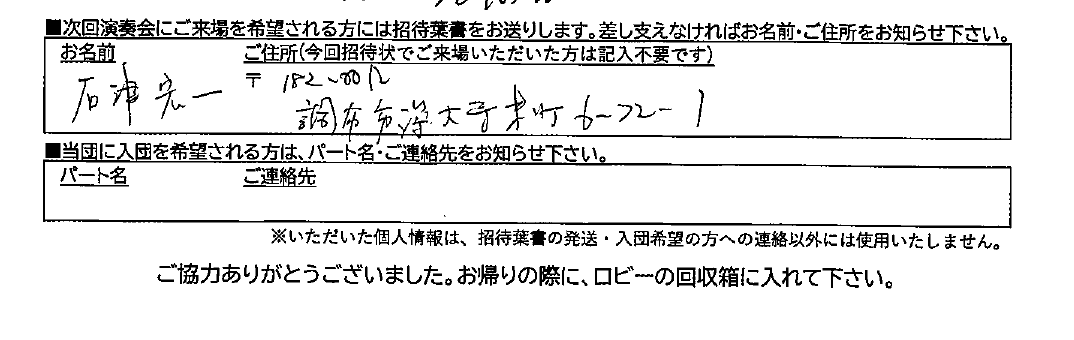 ■次回演奏会にご来場を希望される方には招待葉書をお送りします。差し支えなければお名前・ご住所をお知らせ下さい。
お名前 ご住所(今回招待状でご来場いただいた方は記入不要です)
石津宏一 〒 182-0012
調布市深大寺東町 6-72-1
■当団に入団を希望される方は、パート名・ご連絡先をお知らせ下さい。
パート名 ご連絡先
※いただいた個人情報は、招待葉書の発送・入団希望の方への連絡以外には使用いたしません。
ご協力ありがとうございました。お帰りの際に、ロビーの回収箱に入れて下さい。